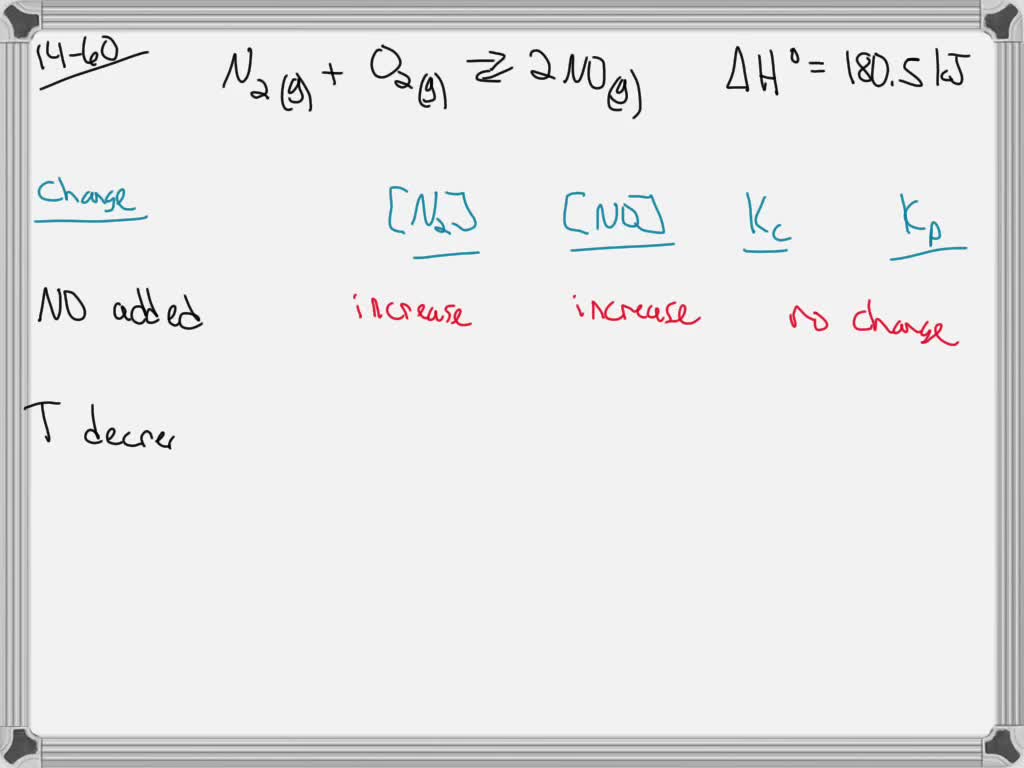 14-60
N₂(g) + O₂(g) ⇌ 2NO(g) ΔH° = 180.5 kJ
Change [N₂] [NO] Kc Kp
NO added increase increase no change
T decrea